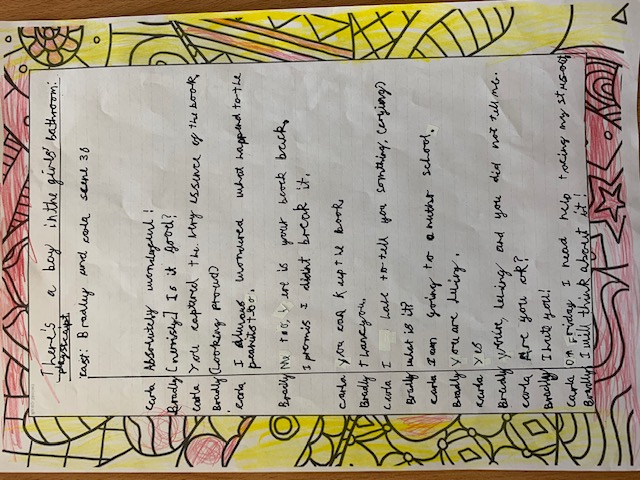 There's a boy in the girls' bathroom:
playscript
cast: Bradley and carla scene 36
carla Absolutely wonderful!
Bradly (nervisly) Is it good?
carla You captured the very essence of the book,
Bradly (Looking proud)
carla I always wondered what happend to the
peanut too.
Bradly Me too, here is your book back,
I promis I didnt break it.
carla you can k eep the book,
Bradly thankyou,
Carla I have to tell you somthing, (crying)
Bradly what is it?
carla I am going to a nuther school,
Bradly You are leving,
carla yes
Bradly your're leving and you did not tell me.
carla Are you ok?
Bradly I hate you!
carla On Friday I need help taking my stuff out
Bradly I will think about it!